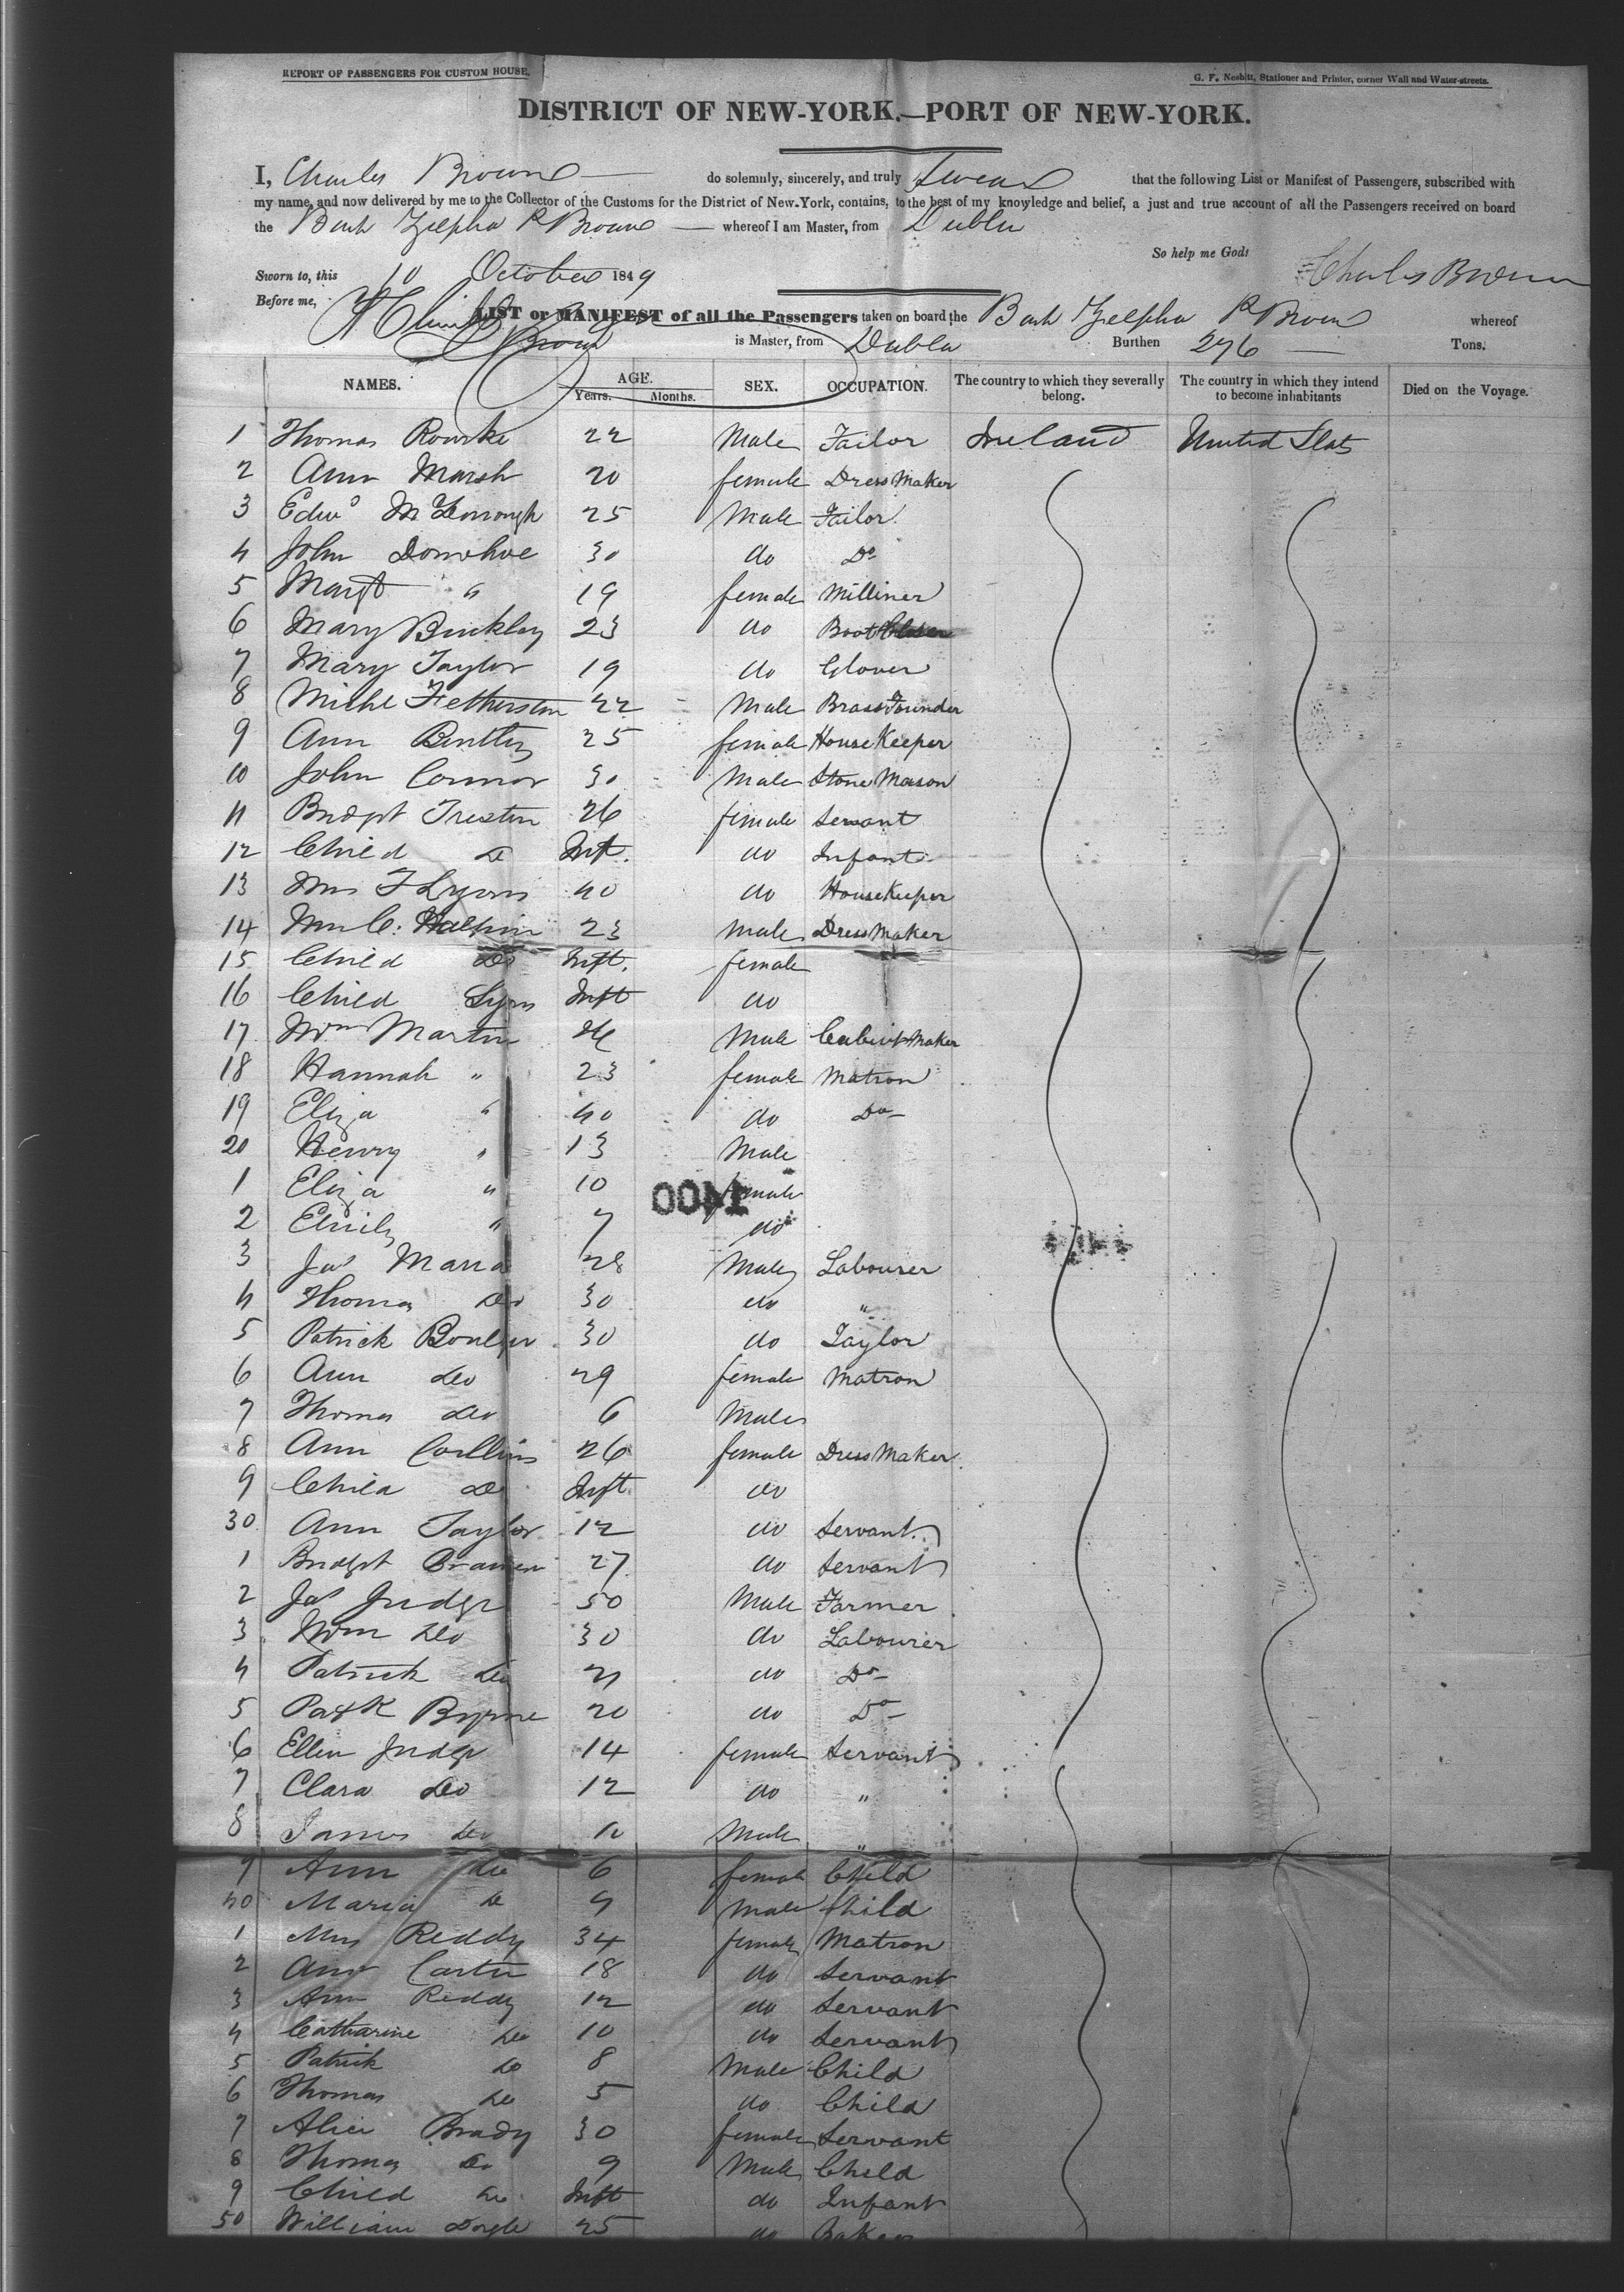 REPORT OF PASSENGERS FOR CUSTOM HOUSE.
G. F. Nesbitt, Stationer and Printer, corner Wall and Water-streets.
DISTRICT OF NEW-YORK.—PORT OF NEW-YORK.
I, Charles Brown do solemnly, sincerely, and truly Swear that the following List or Manifest of Passengers, subscribed with
my name, and now delivered by me to the Collector of the Customs for the District of New-York, contains, to the best of my knowledge and belief, a just and true account of all the Passengers received on board
the Bark Zelpha P Brown whereof I am Master, from Dublin
So help me God:
Sworn to, this 10 October 1849 Charles Brown
Before me,
LIST or MANIFEST of all the Passengers taken on board the Bark Zelpha P Brown whereof
C Brown is Master, from Dublin Burthen 276 Tons.
NAMES. AGE. Years. Months. SEX. OCCUPATION. The country to which they severally belong. The country in which they intend to become inhabitants Died on the Voyage.
1 Thomas Rourke 22 Male Tailor Ireland United Stats
2 Ann Marsh 20 female Dress Maker
3 Edwd 25 Male Tailor
4 John Donohoe 30 do Do
5 Margt " 19 female Milliner
6 Mary Buckley 23 do Boot Closer
7 Mary Taylor 19 do Glover
8 Michl Fetherston 22 Male Brass Founder
9 Ann 25 female House Keeper
10 John Connor 30 Male Stone Mason
11 Bridgt 26 female Servant
12 Child Do Inft. do Infant
13 Mrs F Lyons 40 do House Keeper
14 Mrs C. Halpin 23 male Dress Maker
15 Child Do Inft. female
16 Child Lyons Inft do
17 Wm Martin 26 Male Cabinet Maker
18 Hannah " 23 female Matron
19 Eliza " 40 do Do
20 Henry " 13 Male
1 Eliza " 10 female
2 Emily " 7 do
3 Jas 28 Male Labourer
4 Thomas Do 30 do "
5 Patrick 30 do Taylor
6 Ann Do 29 female Matron
7 Thomas Do 6 Male
8 Ann Collins 26 female Dress Maker
9 Child Do Inft. do
30 Ann Taylor 12 do Servant
1 Bridgt 27 do Servant
2 Jas Judge 50 Male Farmer
3 Wm Do 30 do Labourer
4 Patrick Do 21 do Do
5 Patk Byrne 20 do Do
6 Ellen Judge 14 female Servant
7 Clara Do 12 do "
8 James Do Male "
9 Ann Do 6 female Child
40 Maria Do male Child
1 Mrs Reddy 34 female Matron
2 Ann Carter 18 do Servant
3 Ann Reddy 12 do Servant
4 Catharine Do 10 do Servant
5 Patrick Do 8 Male Child
6 Thomas Do 5 do Child
7 Alice Brady 30 female Servant
8 Thomas Do 9 Male Child
9 Child Do Inft do Infant
50 William Doyle 25 do Baker